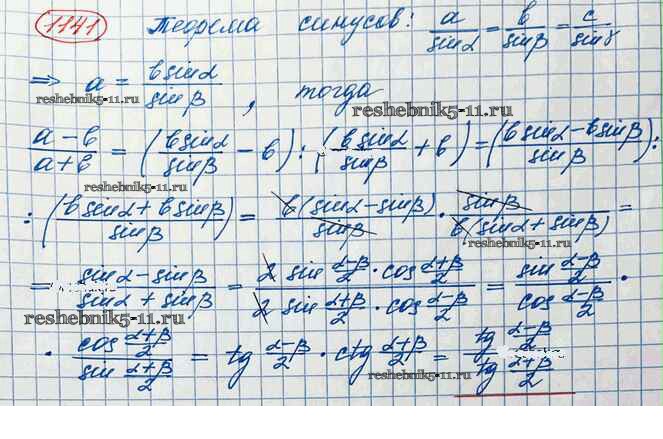 1141 Теорема синусов: a/sinα = b/sinβ = c/sinγ
⇒ a = bsinα/sinβ, тогда
reshebnik5-11.ru
reshebnik5-11.ru
(a-b)/(a+b) = (bsinα/sinβ - b) : (bsinα/sinβ + b) = ((bsinα - bsinβ)/sinβ) :
reshebnik5-11.ru
: ((bsinα + bsinβ)/sinβ) = b(sinα - sinβ)/sinβ · sinβ/b(sinα + sinβ) =
reshebnik5-11.ru
= (sinα - sinβ)/(sinα + sinβ) = (2 sin (α-β)/2 · cos (α+β)/2)/(2 sin (α+β)/2 · cos (α-β)/2) = (sin (α-β)/2)/(cos (α-β)/2) ·
reshebnik5-11.ru
· (cos (α+β)/2)/(sin (α+β)/2) = tg (α-β)/2 · ctg (α+β)/2 = (tg (α-β)/2)/(tg (α+β)/2)
reshebnik5-11.ru